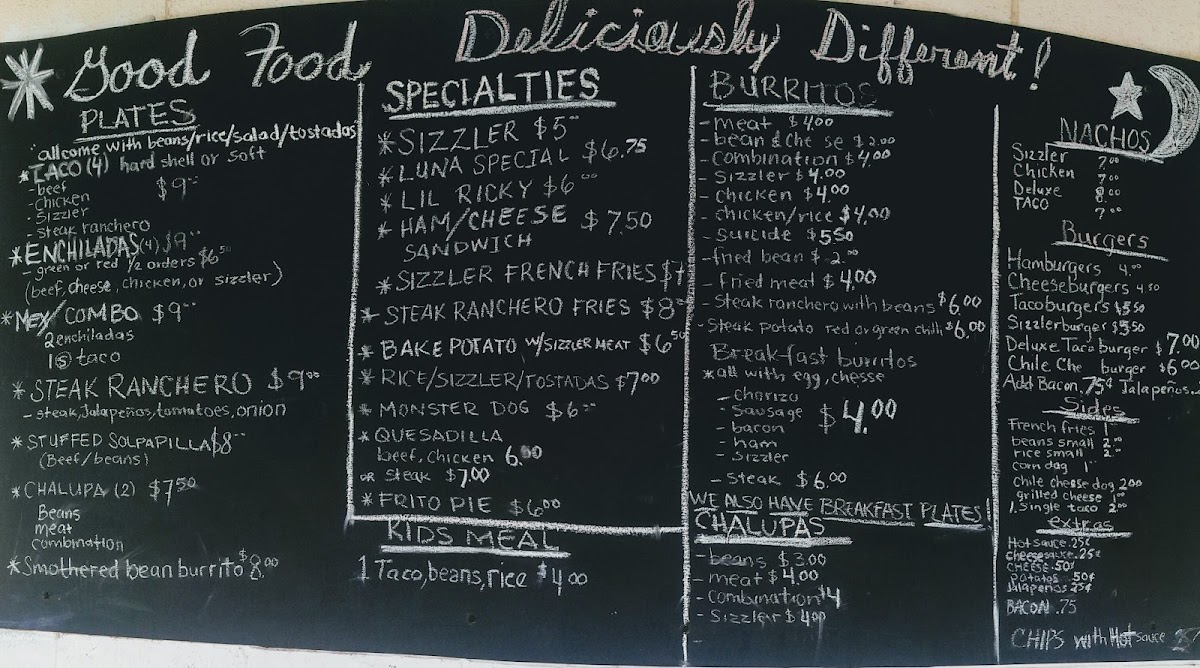 Good Food Deliciously Different!
PLATES
"all come with beans/rice/salad/tostadas
*TACO (4) hard shell or soft
-beef $9.00
-chicken
-Sizzler
-steak ranchero
*ENCHILADAS (4) $9.00
-green or red 1/2 orders $6.50
(beef, cheese, chicken, or sizzler)
*MEX/COMBO $9.00
2 enchiladas
1 (S) taco
*STEAK RANCHERO $9.00
-steak, Jalapeños, tomatoes, onion
*STUFFED SOLPAPILLA $8.00
(Beef/beans)
*CHALUPA (2) $7.50
Beans
meat
combination
*Smothered bean burrito $8.00
SPECIALTIES
*SIZZLER $5.00
*LUNA SPECIAL $6.75
*LIL RICKY $6.00
*HAM/CHEESE $7.50
SANDWICH
*SIZZLER FRENCH FRIES $7
*STEAK RANCHERO FRIES $8.00
*BAKE POTATO W/SIZZLER MEAT $6.50
*RICE/SIZZLER/TOSTADAS $7.00
*MONSTER DOG $6.00
*QUESADILLA
beef, chicken 6.00
OR Steak $7.00
*FRITO PIE $6.00
KIDS MEAL
1 Taco, beans, rice $4.00
BURRITOS
-meat $4.00
-bean & che se $2.00
-combination $4.00
-Sizzler $4.00
-chicken $4.00
-chicken/rice $4.00
-Suicide $5.50
-fried bean $2.00
-fried meat $4.00
-Steak ranchero with beans $6.00
-Steak potato red or green chili $6.00
Breakfast burritos
*all with egg, chesse
-Chorizo
-Sausage $4.00
-bacon
-ham
-Sizzler
-Steak $6.00
WE ALSO HAVE BREAKFAST PLATES!
CHALUPAS
-beans $3.00
-meat $4.00
-Combination $4
-Sizzler $4.00
-
NACHOS
Sizzler 7.00
Chicken 7.00
Deluxe 8.00
TACO 7.00
Burgers
Hamburgers 4.00
Cheeseburgers 4.50
Tacoburgers $5.50
Sizzlerburger $5.50
Deluxe Taco burger $7.00
Chile Che burger $6.00
Add Bacon .75¢ Jalapeños
Sides
French fries 1
beans small 2.00
rice small 2.00
corn dog 1
chile cheese dog 2.00
grilled cheese 1.00
1. Single taco 2.00
extras
Hot sauce .25¢
cheese sauce .25¢
CHEESE .50¢
potatos .50¢
Jalapeños 25¢
BACON .75
CHIPS with Hot sauce